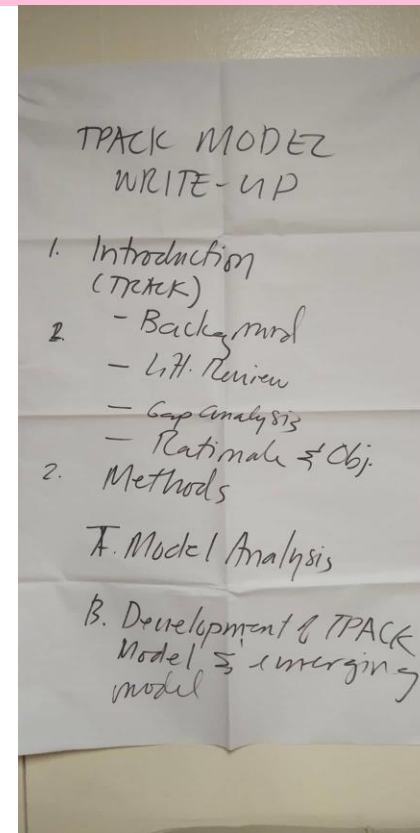 TPACK MODEL
WRITE-UP
1. Introduction
(TPACK)
2. - Background
- Lit. Review
- Gap analysis
- Rationale & Obj.
2. Methods
A. Model Analysis
B. Development of TPACK
Model & emerging
model